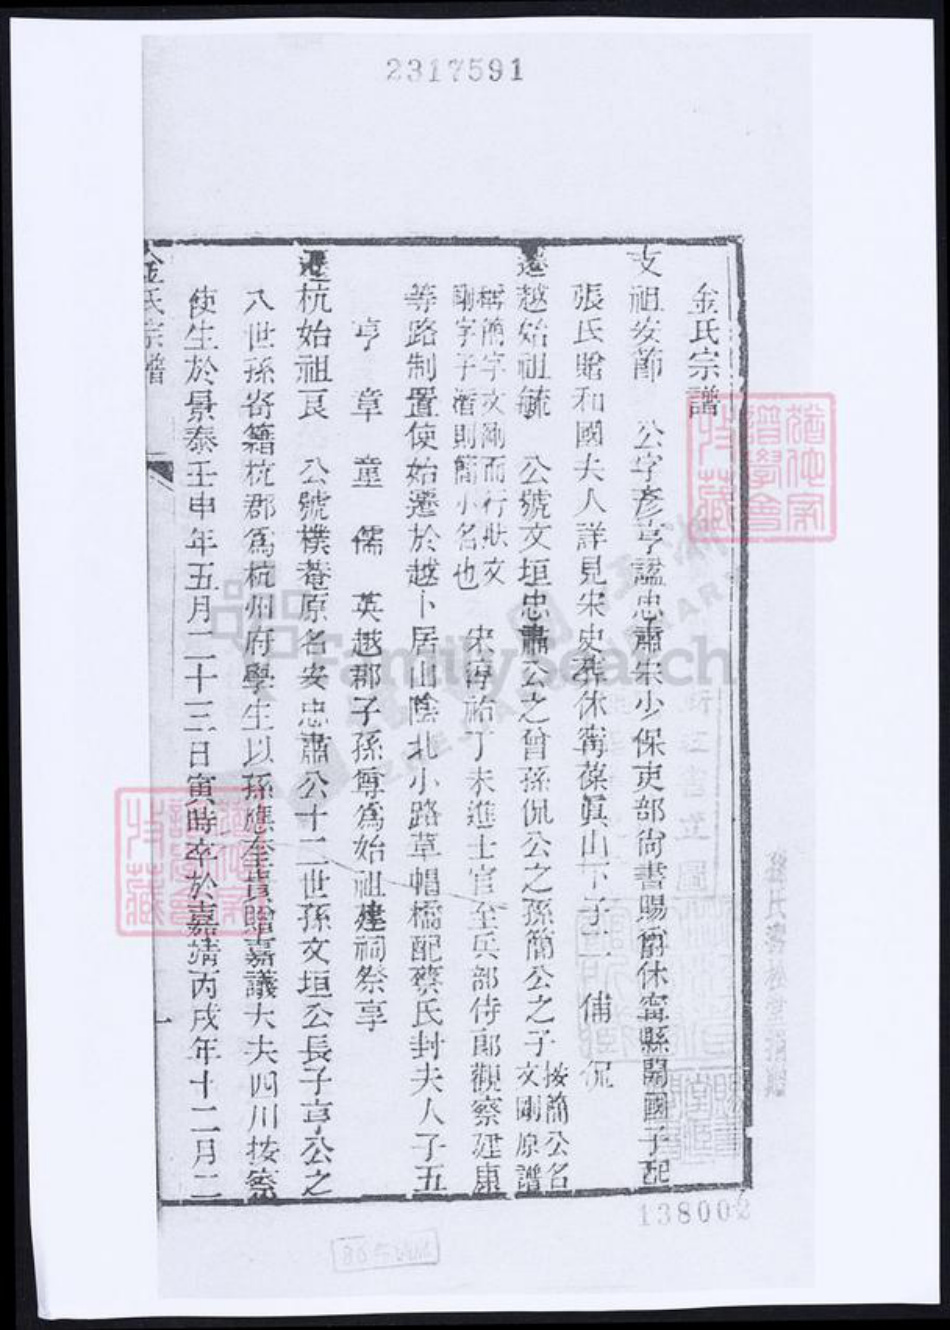 2317591
金氏宗譜
支祖安節　公字彥亨諡忠肅宋少保吏部尚書賜爵休寧縣開國子配
張氏贈和國夫人詳見宋史葬休寧葆眞山下子二　俌　侃
遷越始祖毓　公號文垣忠肅公之曾孫侃公之孫簡公之子按簡公名文剛原譜
稱簡字文剛而行狀文剛字子潛則簡小名也　宋淳祐丁未進士官至兵部侍郎觀察建康
等路制置使始遷於越卜居山陰北小路草帽橋配蔡氏封夫人子五
亨　章　童　儒　英越郡子孫尊爲始祖建祠祭享
遷杭始祖良　公號樸菴原名安忠肅公十二世孫文垣公長子亨公之
八世孫寄籍杭郡爲杭州府學生以孫應奎貴贈嘉議大夫四川按察
使生於景泰壬申年五月二十三日寅時卒於嘉靖丙戌年十二月二
金氏宗譜
一
138002
FamilySearch